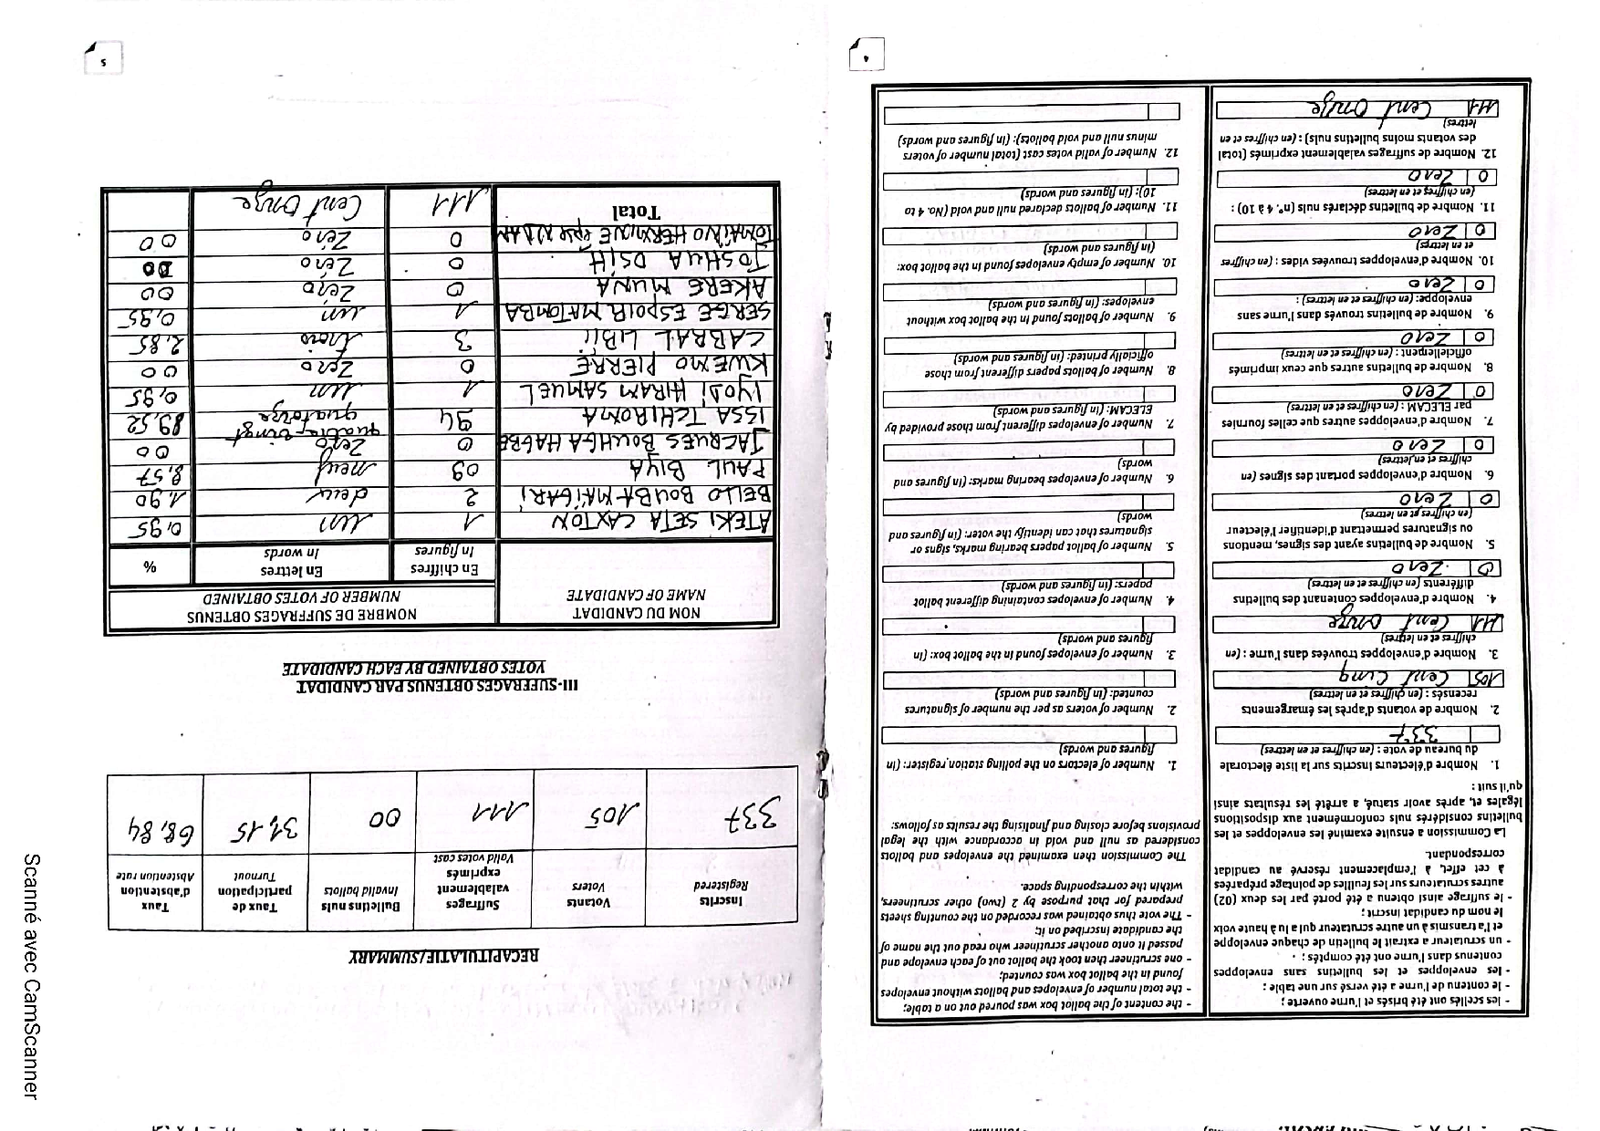 4
- les scellés ont été brisés et l'urne ouverte ;
- le contenu de l'urne a été versé sur une table ;
- les enveloppes et les bulletins sans enveloppes
contenus dans l'urne ont été comptés ;
- un scrutateur a extrait le bulletin de chaque enveloppe
et l'a transmis à un autre scrutateur qui a lu à haute voix
le nom du candidat inscrit ;
- le suffrage ainsi obtenu a été porté par les deux (02)
autres scrutateurs sur les feuilles de pointage préparées
à cet effet, à l'emplacement réservé au candidat
correspondant.
La Commission a ensuite examiné les enveloppes et les
bulletins considérés nuls conformément aux dispositions
légales et, après avoir statué, a arrêté les résultats ainsi
qu'il suit :
1. Nombre d'électeurs inscrits sur la liste électorale
du bureau de vote : (en chiffres et en lettres)
337
2. Nombre de votants d'après les émargements
recensés : (en chiffres et en lettres)
105 Cent Cinq
3. Nombre d'enveloppes trouvées dans l'urne : (en
chiffres et en lettres)
111 Cent Onze
4. Nombre d'enveloppes contenant des bulletins
différents (en chiffres et en lettres)
0 Zero
5. Nombre de bulletins ayant des signes, mentions
ou signatures permettant d'identifier l'électeur
(en chiffres et en lettres)
0 Zero
6. Nombre d'enveloppes portant des signes (en
chiffres et en lettres)
0 Zero
7. Nombre d'enveloppes autres que celles fournies
par ELECAM : (en chiffres et en lettres)
0 Zero
8. Nombre de bulletins autres que ceux imprimés
officiellement : (en chiffres et en lettres)
0 Zero
9. Nombre de bulletins trouvés dans l'urne sans
enveloppe: (en chiffres et en lettres) :
0 Zero
10. Nombre d'enveloppes trouvées vides : (en chiffres
et en lettres)
0 Zero
11. Nombre de bulletins déclarés nuls (n°. 4 à 10) :
(en chiffres et en lettres)
0 Zero
12. Nombre de suffrages valablement exprimés (total
des votants moins bulletins nuls) : (en chiffres et en
lettres)
111 Cent Onze
- the content of the ballot box was poured out on a table;
- the total number of envelopes and ballots without envelopes
found in the ballot box was counted;
- one scrutineer then took the ballot out of each envelope and
passed it onto another scrutineer who read out the name of
the candidate inscribed on it;
- The vote thus obtained was recorded on the counting sheets
prepared for that purpose by 2 (two) other scrutineers,
within the corresponding space.
The Commission then examined the envelopes and ballots
considered as null and void in accordance with the legal
provisions before closing and finalising the results as follows:
1. Number of electors on the polling station register: (in
figures and words)
2. Number of voters as per the number of signatures
counted: (in figures and words)
3. Number of envelopes found in the ballot box: (in
figures and words)
4. Number of envelopes containing different ballot
papers: (in figures and words)
5. Number of ballot papers bearing marks, signs or
signatures that can identify the voter: (in figures and
words)
6. Number of envelopes bearing marks: (in figures and
words)
7. Number of envelopes different from those provided by
ELECAM: (in figures and words)
8. Number of ballots papers different from those
officially printed: (in figures and words)
9. Number of ballots found in the ballot box without
envelopes: (in figures and words)
10. Number of empty envelopes found in the ballot box:
(in figures and words)
11. Number of ballots declared null and void (No. 4 to
10): (in figures and words)
12. Number of valid votes cast (total number of voters
minus null and void ballots): (in figures and words)
5
RECAPITULATIF/SUMMARY
Inscrits Registered | Votants Voters | Suffrages valablement exprimés Valid votes cast | Bulletins nuls Invalid ballots | Taux de participation Turnout | Taux d'abstention Abstention rate
337 105 111 00 31,15 68,84
III-SUFFRAGES OBTENUS PAR CANDIDAT
VOTES OBTAINED BY EACH CANDIDATE
NOM DU CANDIDAT NOMBRE DE SUFFRAGES OBTENUS
NAME OF CANDIDATE NUMBER OF VOTES OBTAINED
En chiffres En lettres %
In figures In words
ATEKI SETA CAXTON 1 un 0,95
BELLO BOUBA MAÏGARI 2 deux 1,90
PAUL BIYA 09 neuf 8,57
JACQUES BOUHGA HAGBE 0 Zero 00
ISSA TCHIROMA 94 quatre-vingt quatorze 89,52
IYODI HIRAM SAMUEL 1 un 0,95
KWEMO PIERRE 0 Zero 00
CABRAL LIBII 3 trois 2,85
SERGE ESPOIR MATOMBA 1 un 0,95
AKERE MUNA 0 Zéro 00
JOSHUA OSIH 0 Zéro 00
TOMAÏNO HERMINE épse NDAM 0 Zéro 00
Total 111 Cent Onze
Scanné avec CamScanner